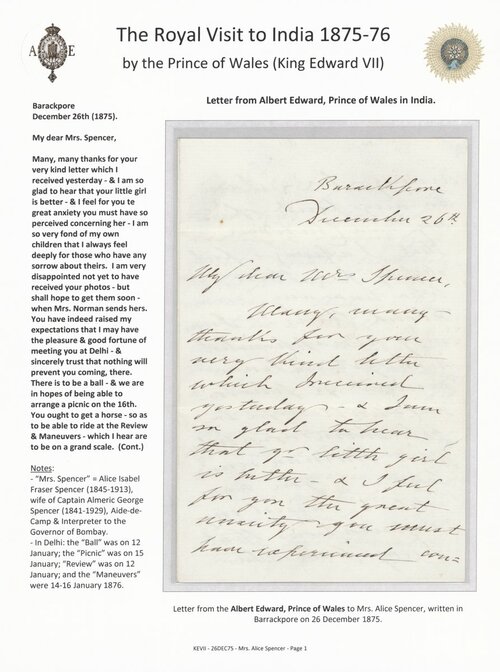 The Royal Visit to India 1875-76
by the Prince of Wales (King Edward VII)
A E
Barackpore
December 26th (1875).
My dear Mrs. Spencer,
Many, many thanks for your
very kind letter which I
received yesterday - & I am so
glad to hear that your little girl
is better - & I feel for you te
great anxiety you must have so
perceived concerning her - I am
so very fond of my own
children that I always feel
deeply for those who have any
sorrow about theirs. I am very
disappointed not yet to have
received your photos - but
shall hope to get them soon -
when Mrs. Norman sends hers.
You have indeed raised my
expectations that I may have
the pleasure & good fortune of
meeting you at Delhi - &
sincerely trust that nothing will
prevent you coming, there.
There is to be a ball - & we are
in hopes of being able to
arrange a picnic on the 16th.
You ought to get a horse - so as
to be able to ride at the Review
& Maneuvers - which I hear are
to be on a grand scale. (Cont.)
Notes:
- "Mrs. Spencer" = Alice Isabel
Fraser Spencer (1845-1913),
wife of Captain Almeric George
Spencer (1841-1929), Aide-de-
Camp & Interpreter to the
Governor of Bombay.
- In Delhi: the "Ball" was on 12
January; the "Picnic" was on 15
January; "Review" was on 12
January; and the "Maneuvers"
were 14-16 January 1876.
Letter from Albert Edward, Prince of Wales in India.
Barackpore
December 26th
My dear Mrs Spencer,
Many, many
thanks for your
very kind letter
which I received
yesterday - & I am
so glad to hear
that yr little girl
is better - & I feel
for you the great
anxiety you must
have experienced con=
Letter from the Albert Edward, Prince of Wales to Mrs. Alice Spencer, written in
Barrackpore on 26 December 1875.
KEVII - 26DEC75 - Mrs. Alice Spencer - Page 1